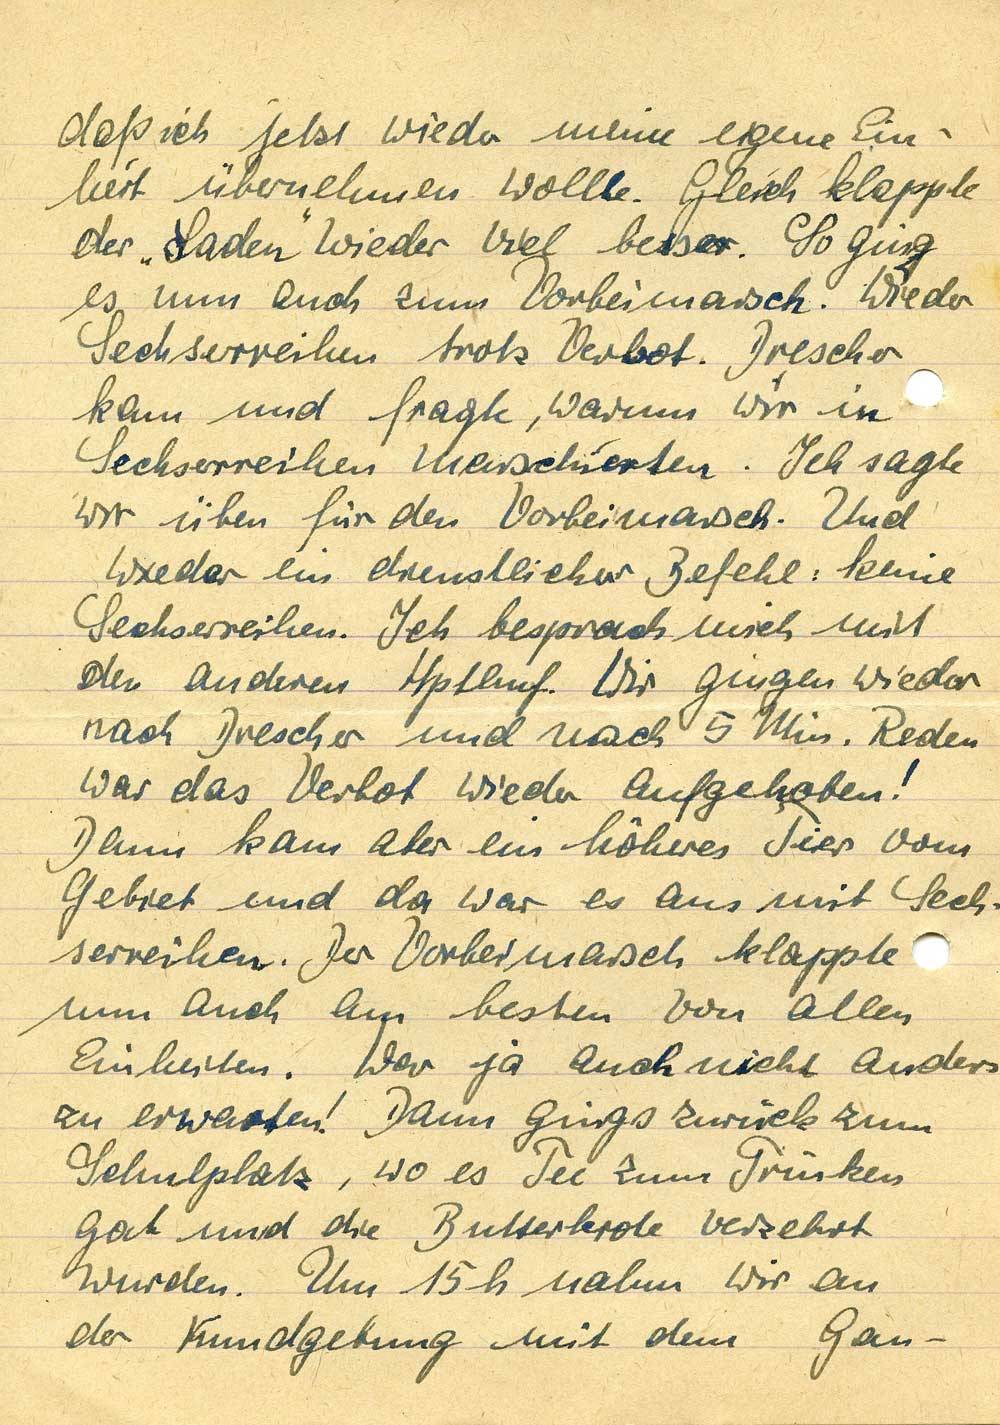 daß ich jetzt wieder meine eigene Ein-
heit übernehmen wollte. Gleich klappte
der „Laden" wieder viel besser. So ging
es nun auch zum Vorbeimarsch. Wieder
Sechserreihen trotz Verbot. Drescher
kam und fragte, warum wir in
Sechserreihen marschierten. Ich sagte
wir üben für den Vorbeimarsch. Und
wieder ein dienstlicher Befehl: keine
Sechserreihen. Ich besprach mich mit
den anderen Hptlinf. Wir gingen wieder
nach Drescher und nach 5 Min. Reden
war das Verbot wieder aufgehoben!
Dann kam aber ein höheres Tier vom
Gebiet und da war es aus mit Sech-
serreihen. Der Vorbeimarsch klappte
nun auch am besten von allen
Einheiten. War ja auch nicht anders
zu erwarten! Dann gings zurück zum
Schulplatz, wo es Tee zum Trinken
gab und die Butterbrote verzehrt
wurden. Um 15 h nahm wir an
der Kundgebung mit dem Gau-